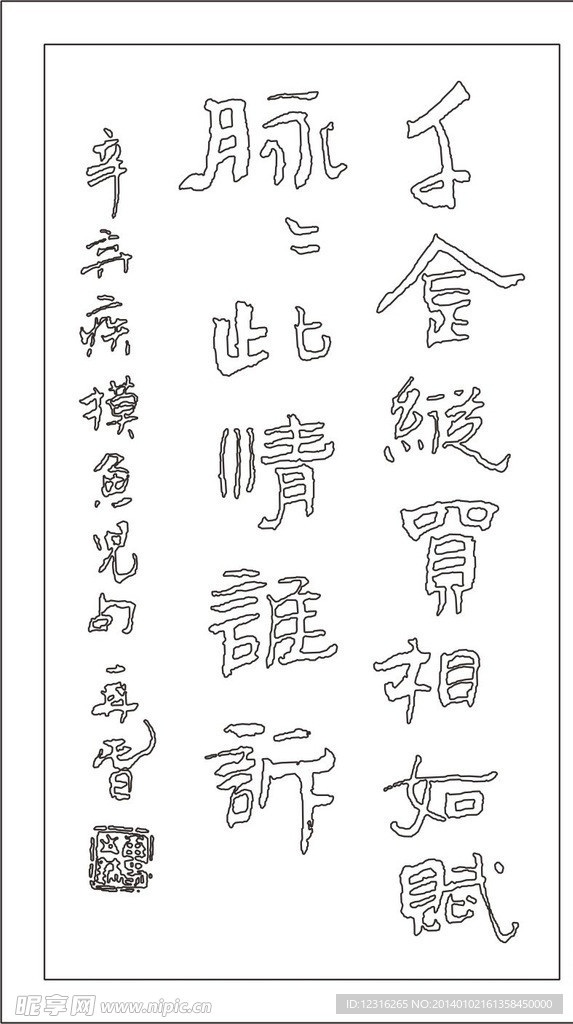 千金縱買相如賦
脉〻此情誰訴
辛弃疾摸魚児句
昵享网 www.nipic.cn
ID:12316265 NO:20140102161358450000